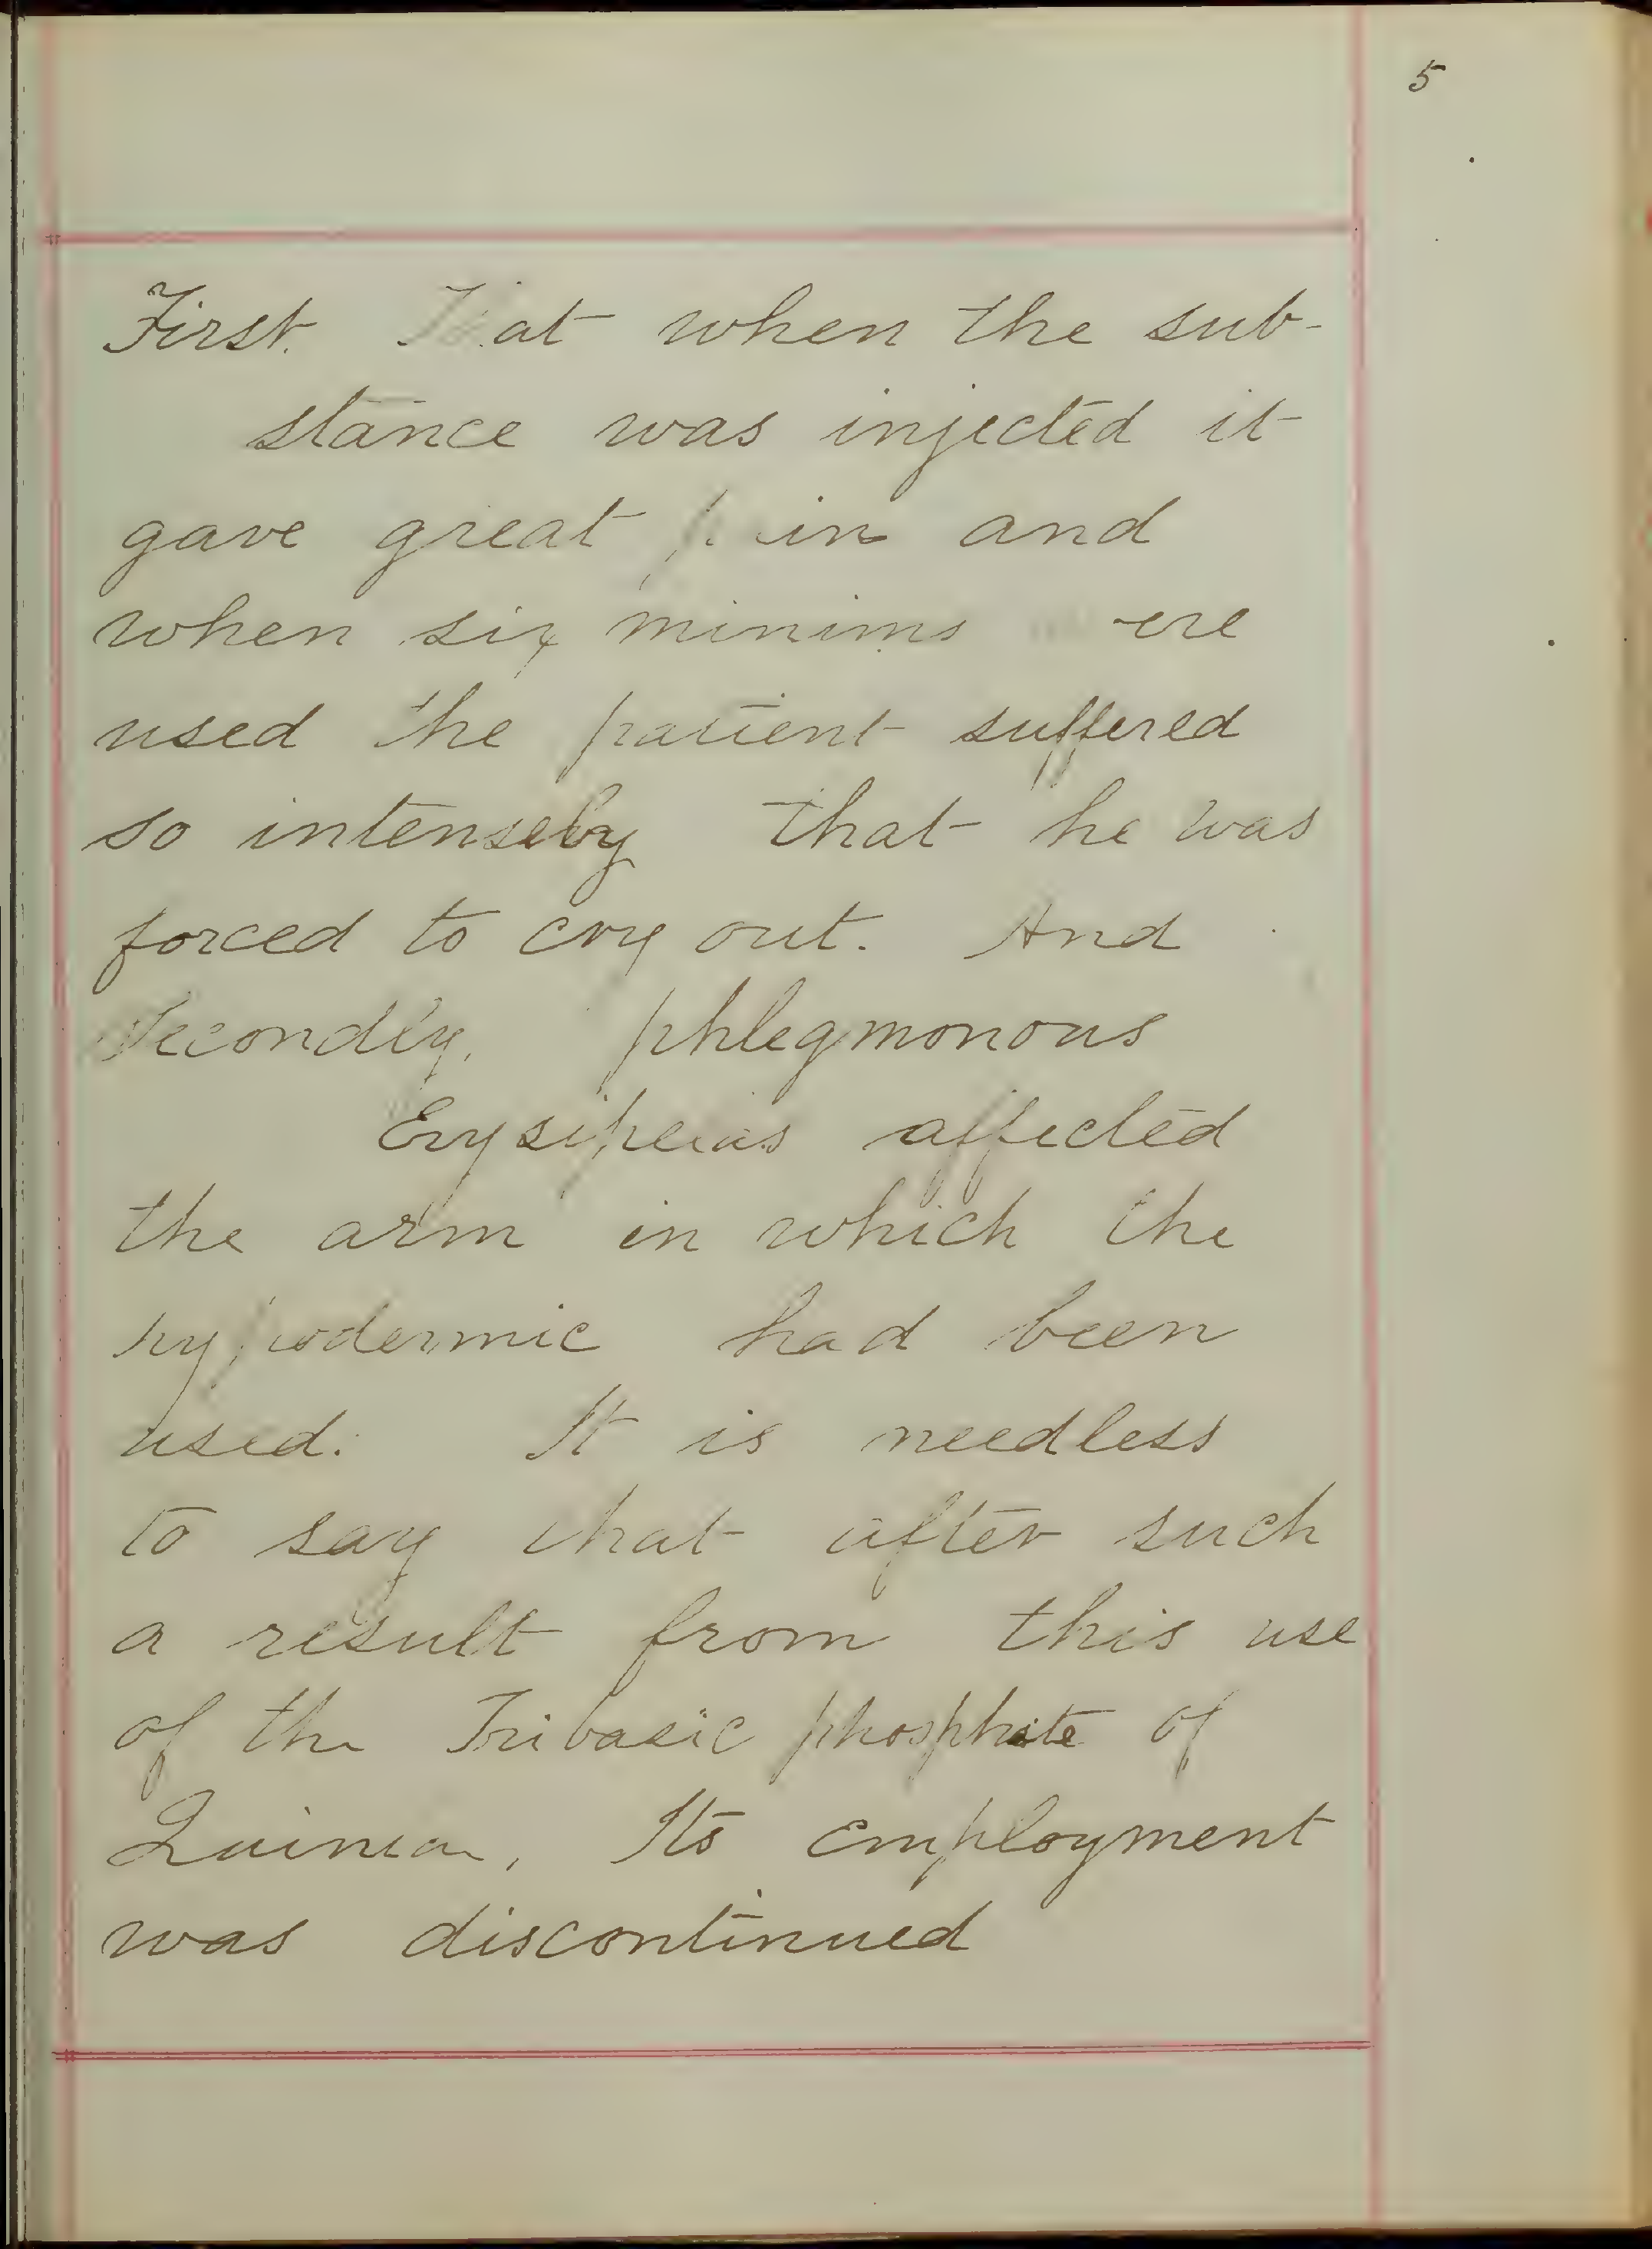 5
First. That when the sub-
stance was injected it
gave great pain and
when six minims were
used the patient suffered
so intensely that he was
forced to cry out. And
Secondly, phlegmonous
Erysipelas affected
the arm in which the
hypodermic had been
used. It is needless
to say that after such
a result from this use
of the Tribasic phosphate of
Quinia, Its employment
was discontinued